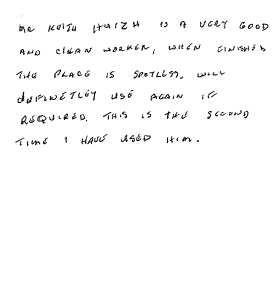 MR KEITH IS A VERY GOOD
AND CLEAN WORKER, WHEN FINISHED
THE PLACE IS SPOTLESS. WILL
DEFINETLEY USE AGAIN IF
REQUIRED. THIS IS THE SECOND
TIME I HAVE USED HIM.